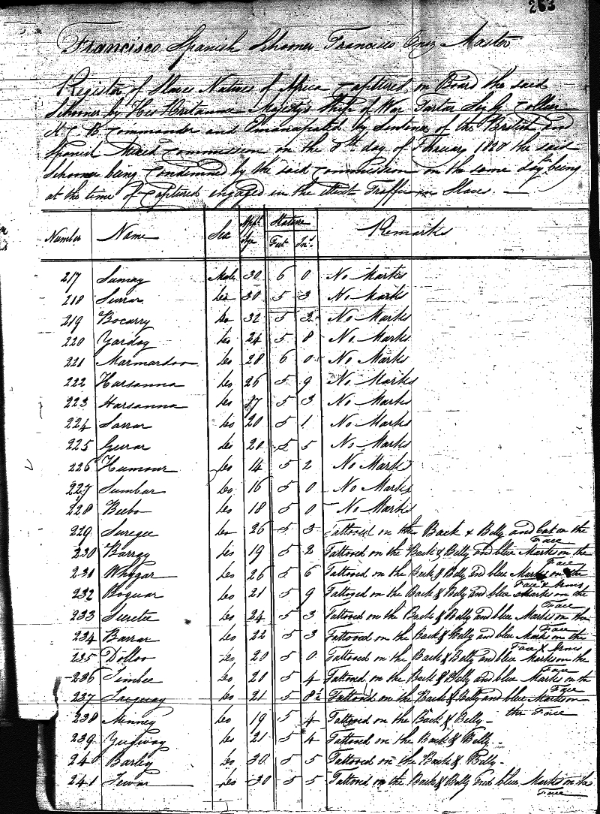 263
Francisco Spanish Schooner Francisco Master
Register of Slaves Natives of Africa Captured on Board the said
Schooner by His Britannic Majesty's Ship of War
Commander and Emancipated by Sentence of the British and
Spanish Mixed Commission on the day of February 1828 the said
Schooner being Condemned by the said Commission on the same day being
at the time of Capture engaged in the illicit Traffic in Slaves. —
Number Name Sex Age Stature Feet In. Remarks
217 Sumay Male 30 6 0 No Marks
218 do 30 5 3 No Marks
219 Bocarry do 32 5 2 No Marks
220 Yarday do 24 5 8 No Marks
221 Marmardoo do 28 6 0 No Marks
222 Harsanna do 26 5 9 No Marks
223 Harsanna do 17 5 3 No Marks
224 Sarrar do 20 5 1 No Marks
225 do 20 5 5 No Marks
226 Humour do 14 5 2 No Marks
227 Sumbar do 16 5 0 No Marks
228 Beebo do 18 5 0 No Marks
229 do 26 5 3 Tattooed on the Back & Belly and on the Face
230 Barrgy do 19 5 2 Tattooed on the Back & Belly and blue Marks on the Face
231 Whygar do 26 5 6 Tattooed on the Back & Belly and blue Marks on the Face & Arms
232 Boguar do 21 5 9 Tattooed on the Back & Belly and blue Marks on the Face
233 do 24 5 3 Tattooed on the Back & Belly and blue Marks on the Face
234 Barrar do 22 5 3 Tattooed on the Back & Belly and blue Marks on the Face & Arms
235 Dolloo do 20 5 0 Tattooed on the Back & Belly and blue Marks on the Face
236 Simbee do 21 5 4 Tattooed on the Back & Belly and blue Marks on the Face
237 do 21 5 8½ Tattooed on the Back & Belly and blue Marks on the Face
238 do 19 5 4 Tattooed on the Back & Belly —
239 do 21 5 4 Tattooed on the Back & Belly —
240 Barley do 30 5 5 Tattooed on the Back & Belly —
241 do 30 5 5 Tattooed on the Back & Belly and blue Marks on the Face